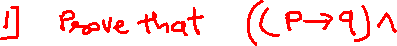 1] Prove that ((P→q)∧